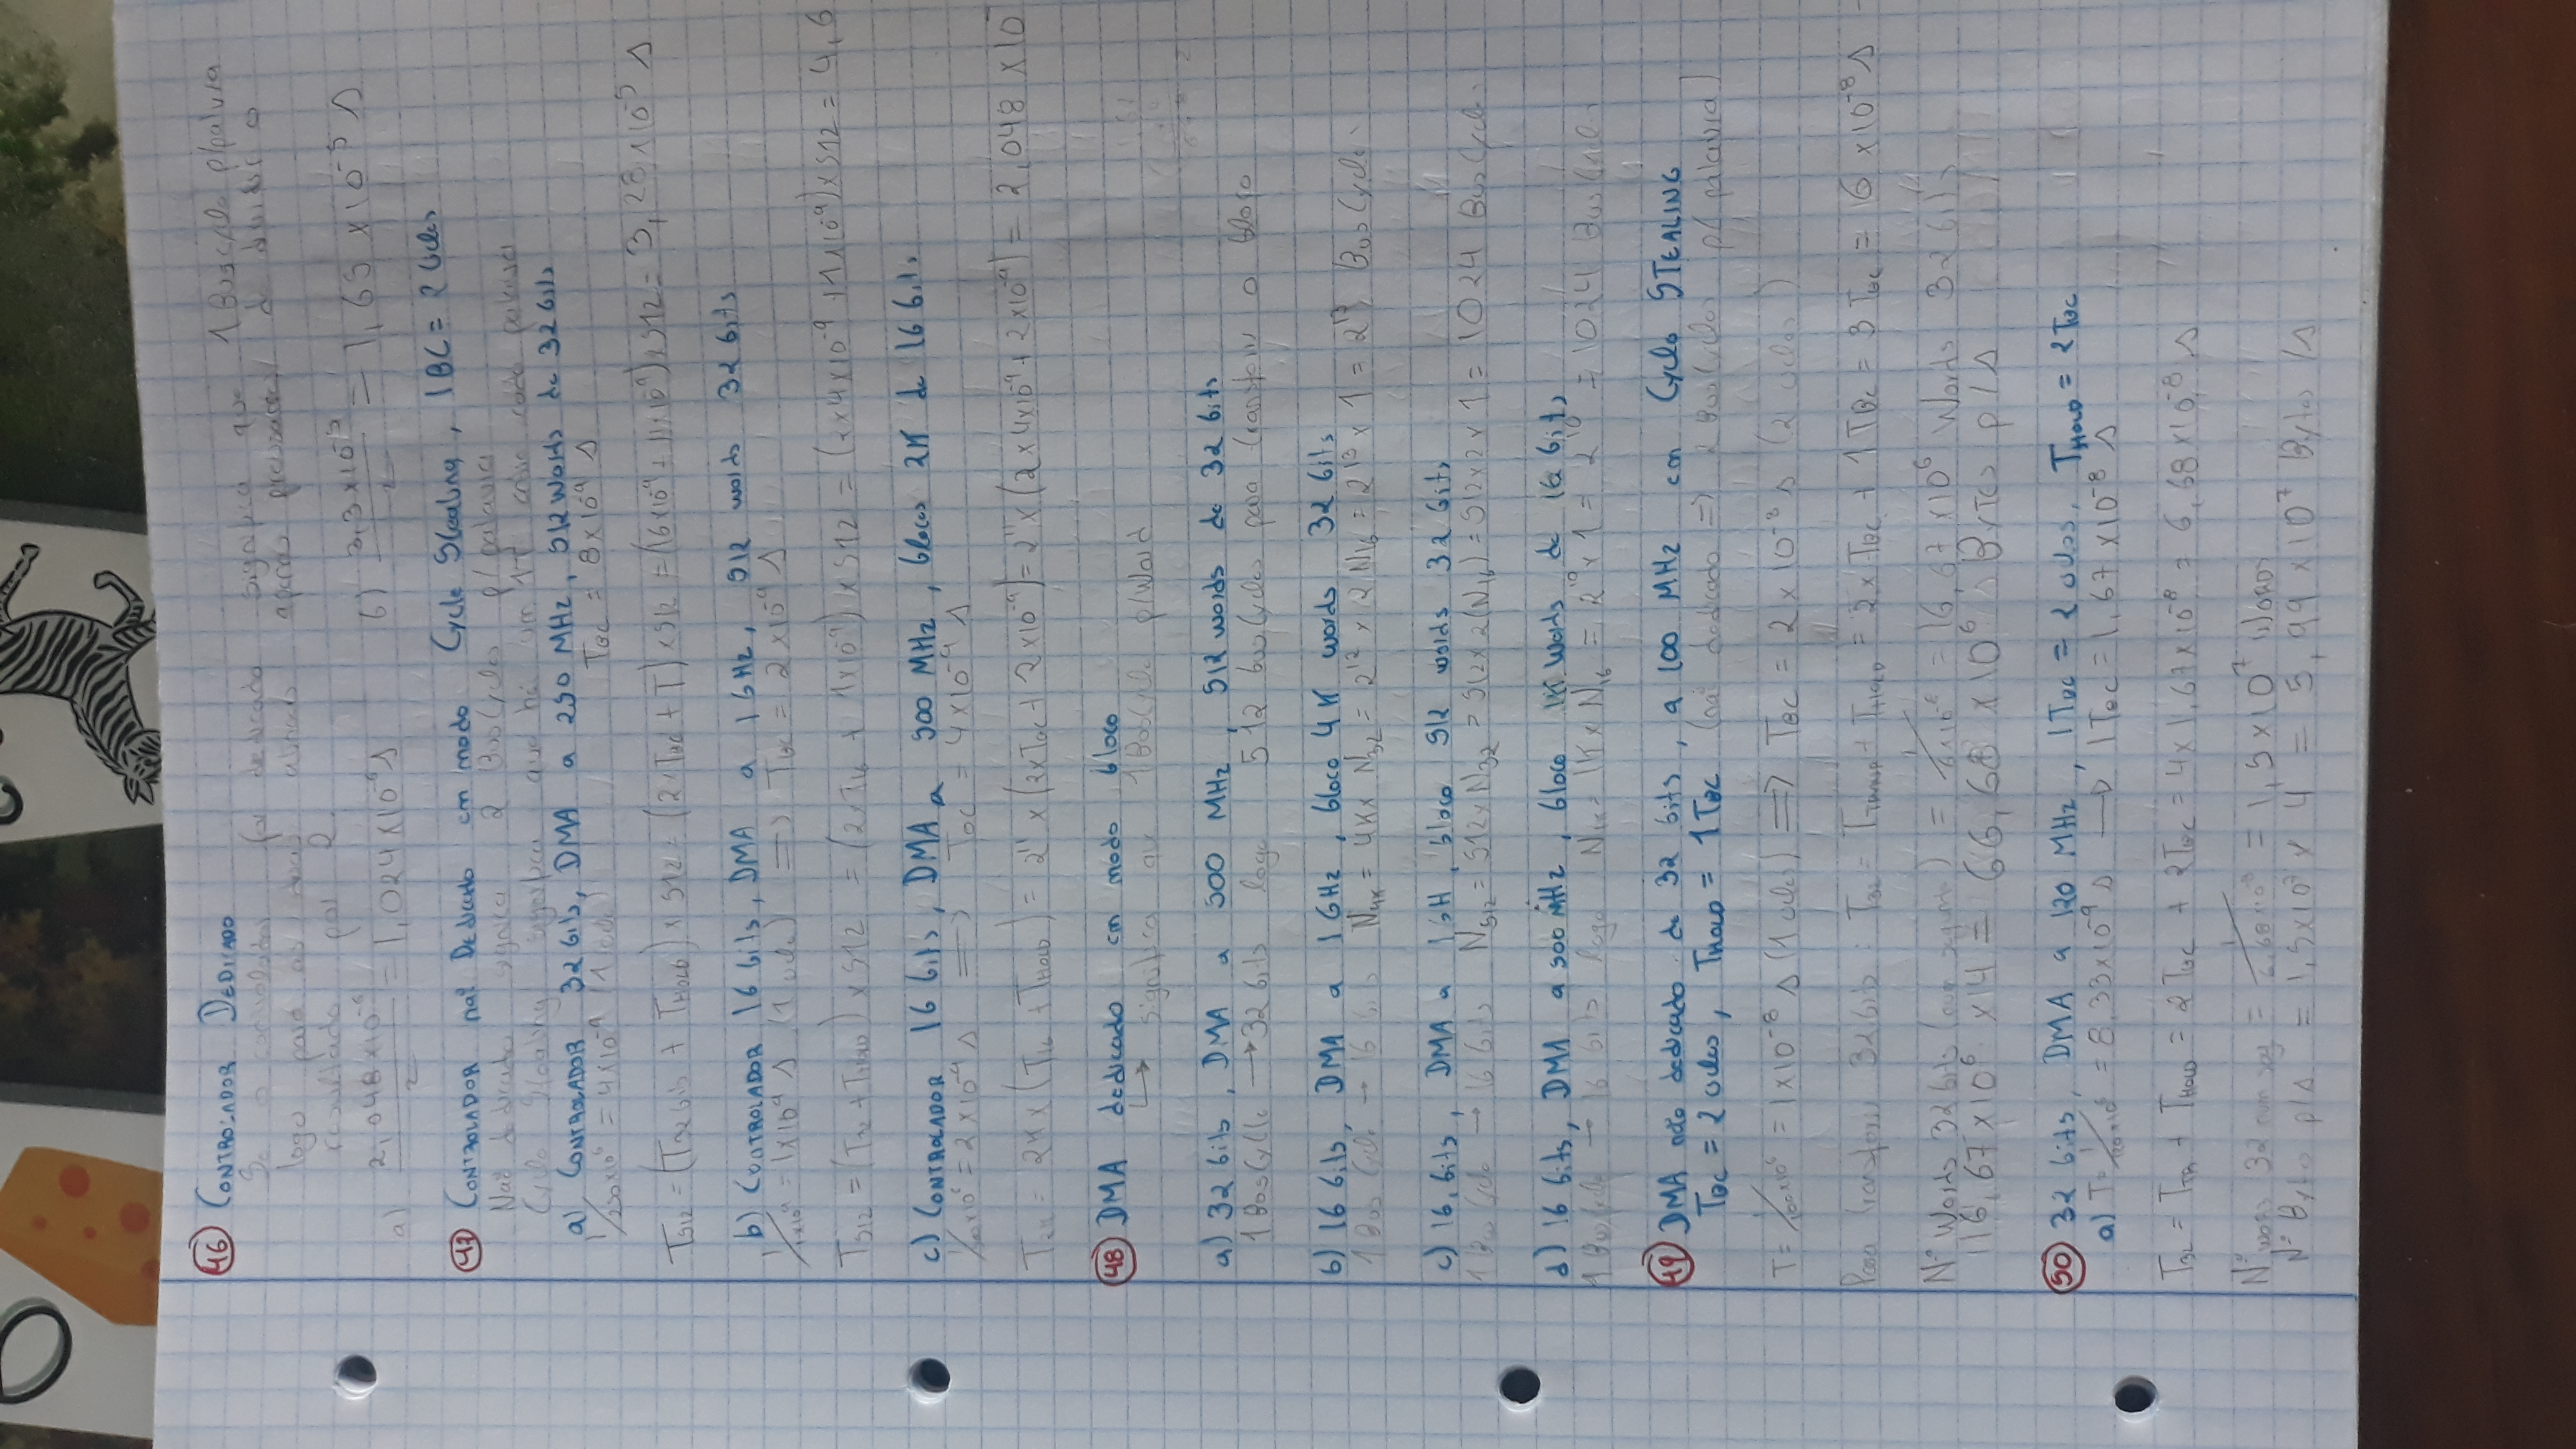 46 CONTROLADOR DEDICADO
Se o controlador for dedicado significa que 1 BusCycle p/palavra
logo para as duas alíneas apenas precisamos de dividir o
resultado por 2.
a) 2,048×10⁻⁶/2 = 1,024×10⁻⁶ s b) 3,3×10⁻⁵/2 = 1,65×10⁻⁵ s
47 CONTROLADOR não Dedicado em modo Cycle Stealing, 1BC = 2 Ciclos
Não dedicado significa 2 BusCycles p/palavra
Cycle Stealing significa que há um 1T entre cada palavra
a) CONTROLADOR 32 bits, DMA a 250 MHz, 512 words de 32 bits
1/250×10⁶ = 4×10⁻⁹ (1 ciclo) TBC = 8×10⁻⁹ s
T512 = (T32bits + THOLD) × 512 = (2×TBC + T) × 512 = (16×10⁻⁹ + ×10⁻⁹) × 512 = 3,28×10⁻⁵ s
b) CONTROLADOR 16 bits, DMA a 1 GHz, 512 words 32 bits
1/1×10⁹ = 1×10⁻⁹ s (1 ciclo) => TBC = 2×10⁻⁹ s
T512 = (T32 + THOLD) × 512 = (2×T16 + 1×10⁻⁹) × 512 = (2×4×10⁻⁹ + 1×10⁻⁹) × 512 = 4,6
c) CONTROLADOR 16 bits, DMA a 500 MHz, blocos 2K de 16 bits
1/500×10⁶ = 2×10⁻⁹ s => TBC = 4×10⁻⁹ s
T2K = 2K × (T16 + THOLD) = 2¹¹ × (2×TBC + 2×10⁻⁹) = 2¹¹ × (2×4×10⁻⁹ + 2×10⁻⁹) = 2,048 ×10
48 DMA dedicado em modo bloco
↳ significa que 1 BusCycle p/Word
a) 32 bits, DMA a 500 MHz, 512 words de 32 bits
1 BusCycle → 32 bits logo 512 busCycles para transferir o bloco
b) 16 bits, DMA a 1 GHz, bloco 4K words 32 bits
1 Bus Cycle → 16 bits N4K = 4K × N32 = 2¹² × 2 N16 = 2¹³ × 1 = 2¹³ BusCycle
c) 16 bits, DMA a 1 GH, bloco 512 words 32 bits
1 Bus Cycle → 16 bits N512 = 512 × N32 = 512 × 2(N16) = 512×2×1 = 1024 BusCycle
d) 16 bits, DMA a 500 MHz, bloco 1K words de 16 bits
1 BusCycle → 16 bits logo N1K = 1K × N16 = 2¹⁰ × 1 = 2¹⁰ = 1024 BusCycle
49 DMA não dedicado de 32 bits, a 100 MHz em Cycle STEALING
TBC = 2 ciclos, THOLD = 1 TBC (não dedicado => 2 BusCycles p/ palavra)
T = 1/100×10⁶ = 1×10⁻⁸ s (1 ciclo) => TBC = 2×10⁻⁸ s (2 ciclos)
Para transferir 32 bits: T32 = TTRANSF + THOLD = 2×TBC + 1 TBC = 3 TBC = 6 ×10⁻⁸ s
Nº Words 32 bits (num segundo) = 1/6×10⁻⁸ = 16,67×10⁶ Words 32 bits
16,67×10⁶ × 4 = 66,68 ×10⁶ Bytes p/s
50 32 bits, DMA a 120 MHz, 1TBC = 2 ciclos, THOLD = 2TBC
a) T = 1/120×10⁶ = 8,33×10⁻⁹ s → 1TBC = 1,67×10⁻⁸ s
T32 = TTR + THOLD = 2TBC + 2TBC = 4×1,67×10⁻⁸ = 6,68×10⁻⁸ s
Nº words 32 num seg = 1/6,68×10⁻⁸ = 1,5×10⁷ Words
Nº Bytes p/s = 1,5×10⁷ × 4 = 5,99×10⁷ Bytes /s